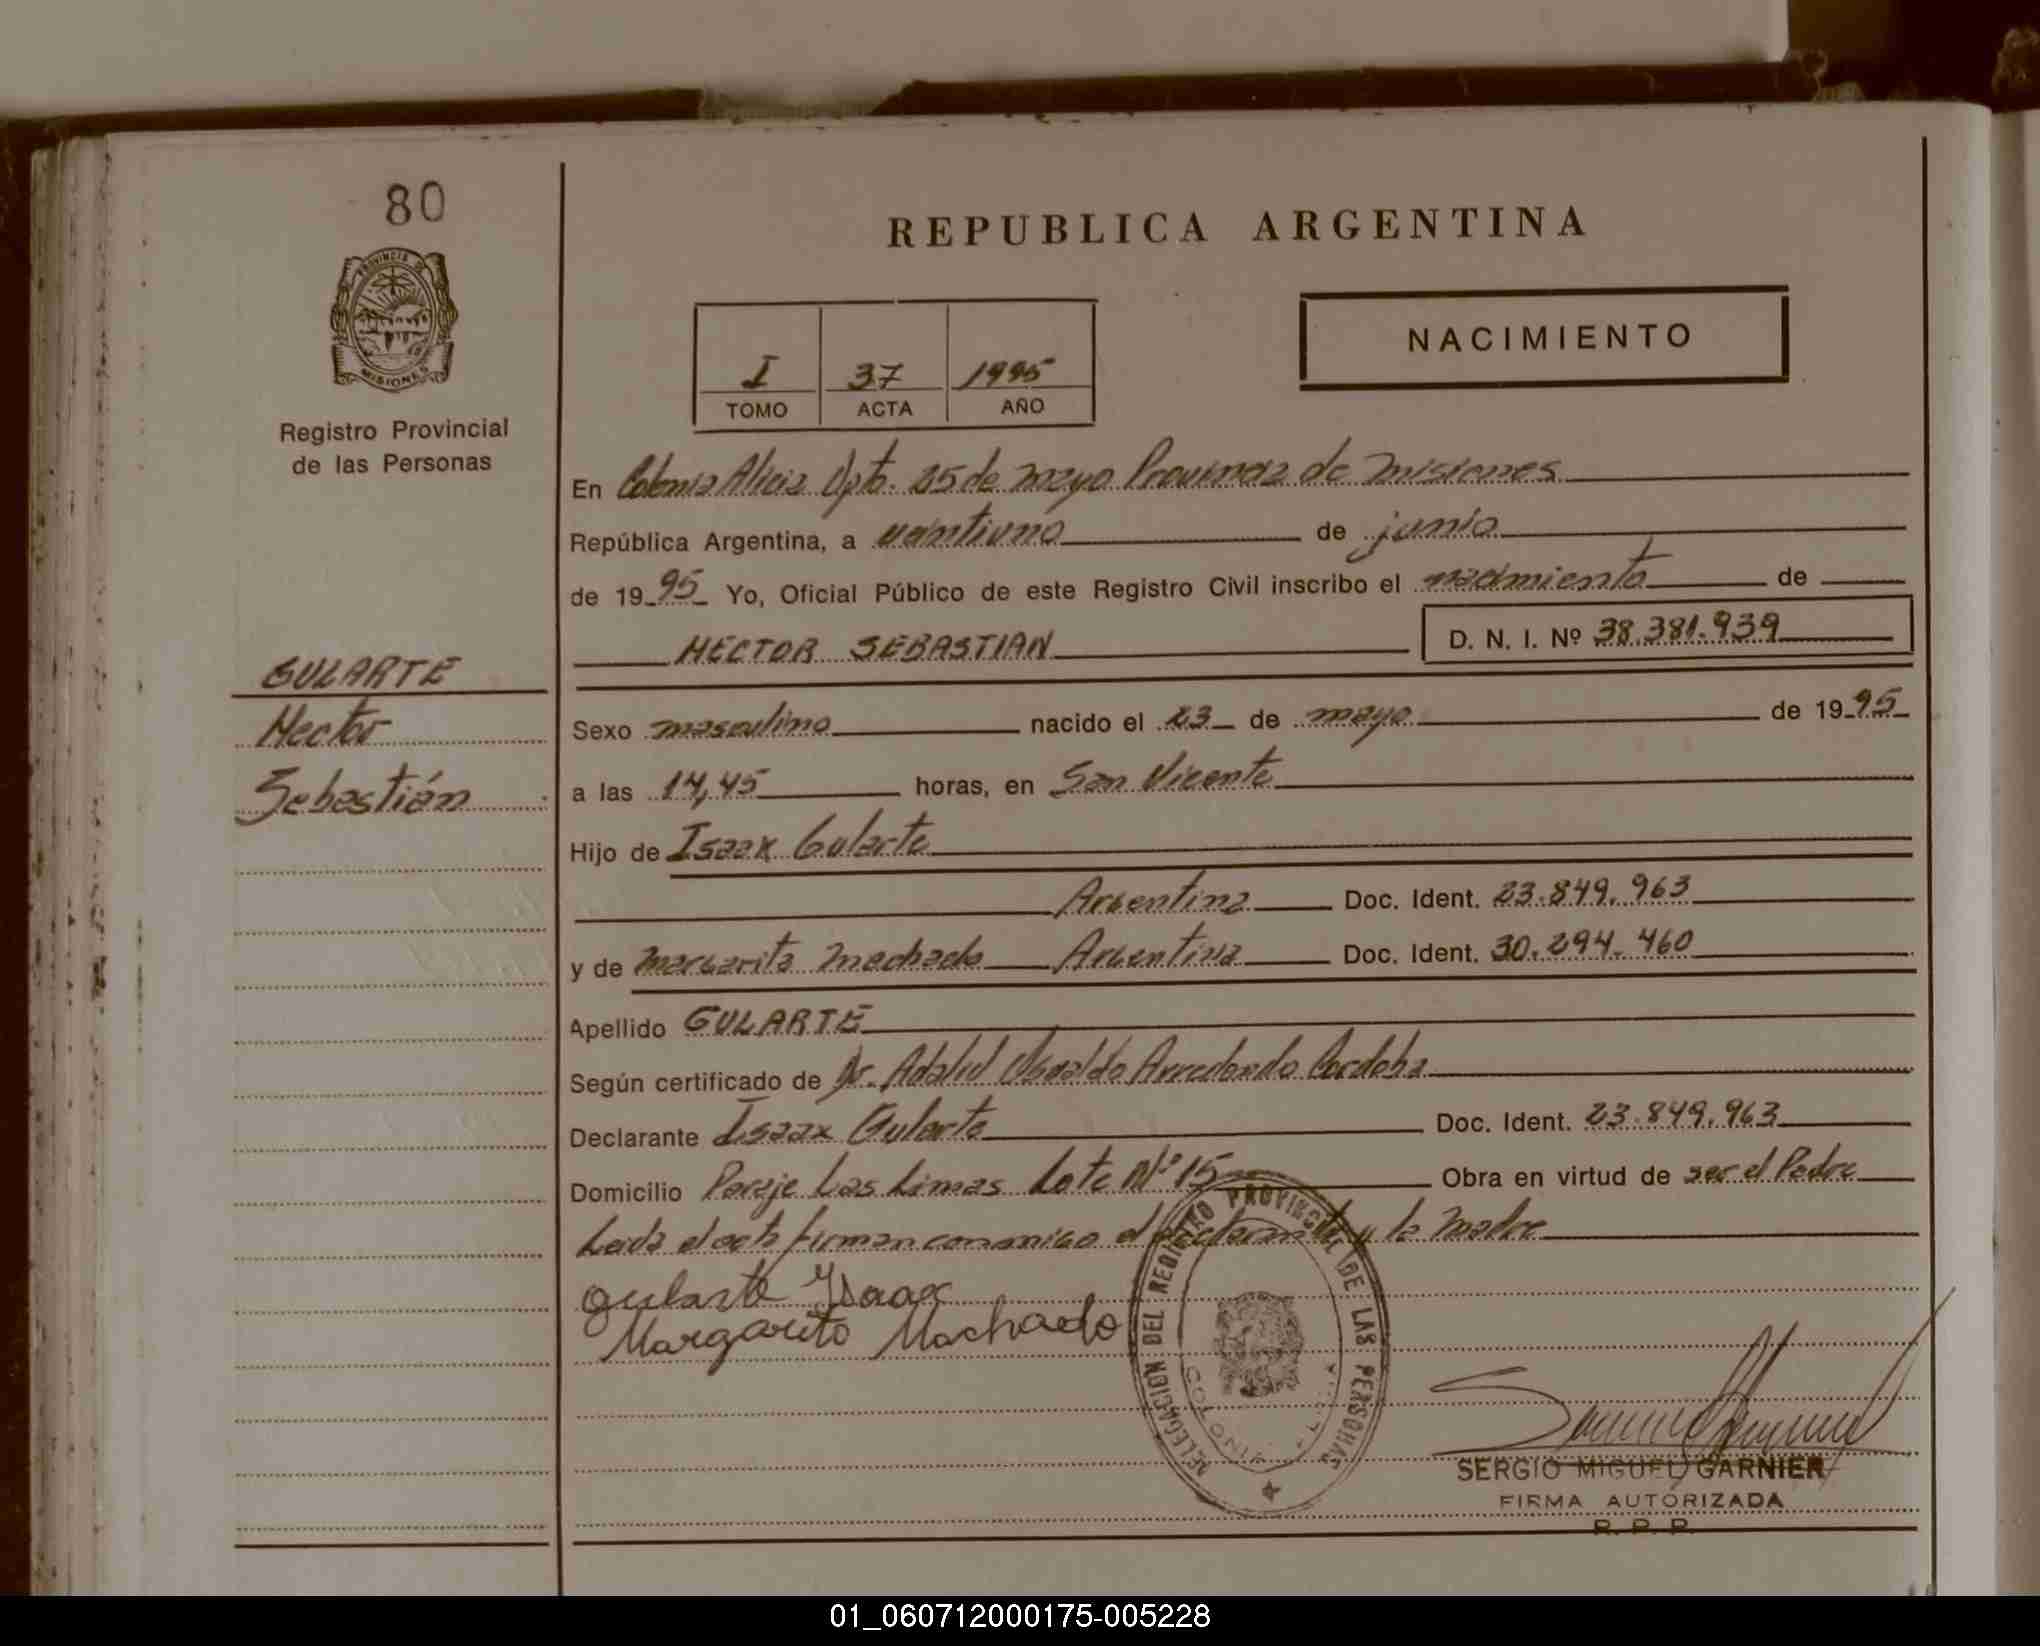 80
PROVINCIA DE
MISIONES
Registro Provincial
de las Personas
GULARTE
Hector
Sebastián
REPUBLICA ARGENTINA
I 37 1995
TOMO ACTA AÑO
NACIMIENTO
En Colonia Alicia Dpto. 25 de mayo Provincia de misiones
República Argentina, a veintiuno de junio
de 1995 Yo, Oficial Público de este Registro Civil inscribo el nacimiento de
HECTOR SEBASTIAN D. N. I. Nº 38.381.939
Sexo masculino nacido el 23 de mayo de 1995
a las 14,45 horas, en San Vicente
Hijo de Isaax Gularte
Argentina Doc. Ident. 23.849.963
y de Margarita Machado Argentina Doc. Ident. 30.294.460
Apellido GULARTE
Según certificado de Dr. Osvaldo Arredondo Cordoba
Declarante Isaax Gularte Doc. Ident. 23.849.963
Domicilio Paraje Las Limas Lote Nº 15 Obra en virtud de ser el Padre
Leida el acta firman conmigo el declarante y la madre
gularte Isaax
Margarita Machado
DELEGACION DEL REGISTRO PROVINCIAL DE LAS PERSONAS
COLONIA ALICIA
SERGIO MIGUEL GARNIER
FIRMA AUTORIZADA
R. P. P.
01_060712000175-005228